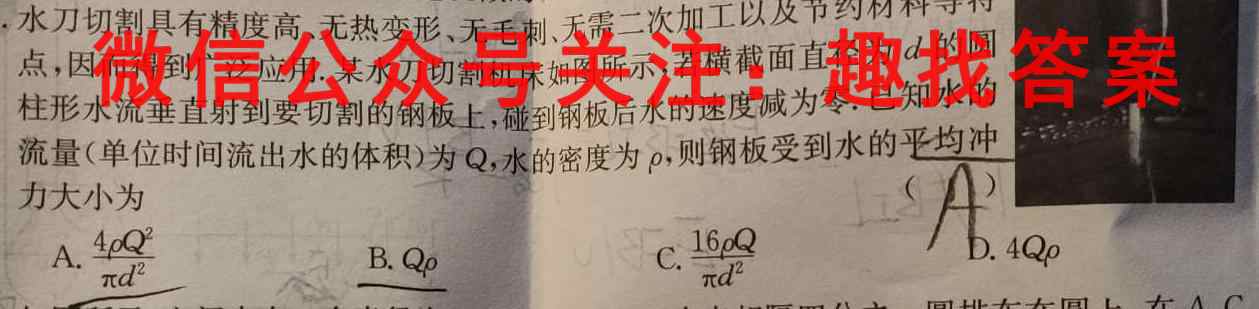 .水刀切割具有精度高、无热变形、无毛刺、无需二次加工以及节约材料等特
点,因而得到广泛应用.某水刀切割机床如图所示,若横截面直径为d的圆
微信公众号关注：趣找答案
柱形水流垂直射到要切割的钢板上,碰到钢板后水的速度减为零.已知水的
流量(单位时间流出水的体积)为Q,水的密度为ρ,则钢板受到水的平均冲
力大小为 (A)
A. 4ρQ²/πd² B. Qρ C. 16ρQ/πd² D. 4Qρ